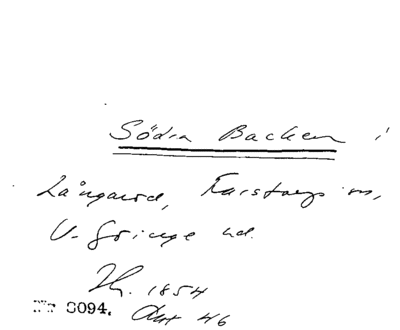 Södra Backen i
Långaröd, Färstorps sn,
V. Göinge hd.
Jfr. 1854
Nr 8094. Akt 46